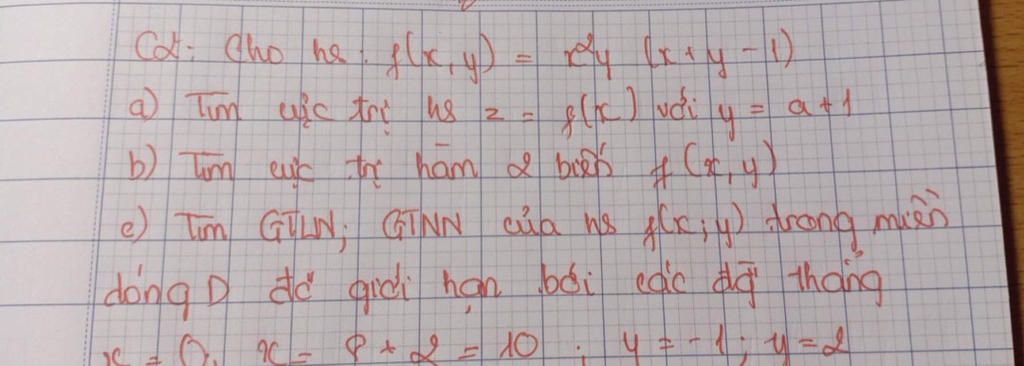 C2: Cho hs: f(x,y) = x²y (x+y-1)
a) Tìm cực trị hs z = f(x) với y = a+1
b) Tìm cực trị hàm 2 biến f(x,y)
c) Tìm GTLN; GTNN của hs f(x;y) trong miền
đóng D đc giới hạn bởi các đg thẳng
x = 0; x = 8 + 2 = 10; y = -1; y = 2